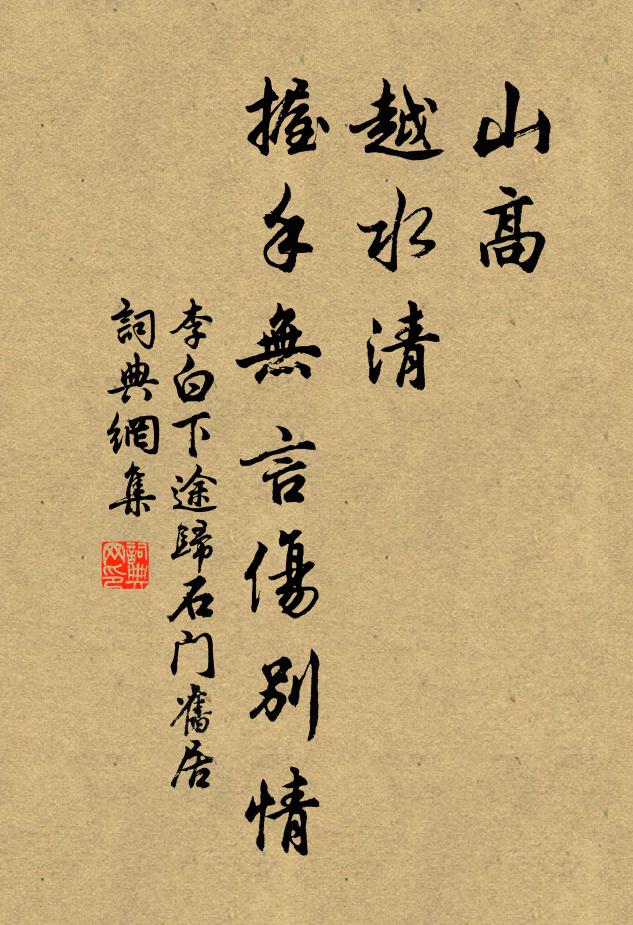 山高
越水清
握手無言傷別情
李白下途歸石門舊居
詞典網集
詞典網印